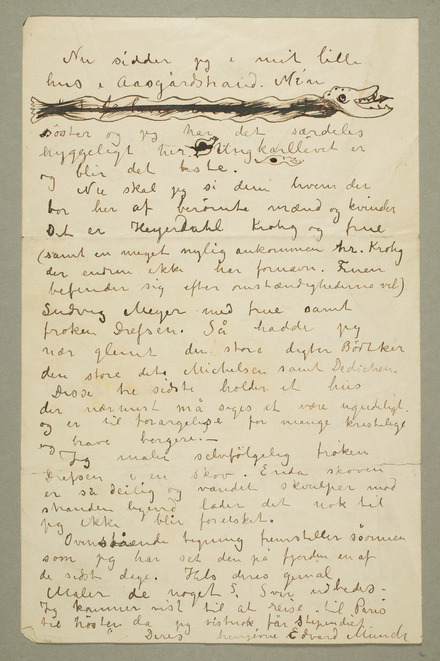 Nu sidder jeg i mit lille
hus i Aasgårdstrand. Min
søster og jeg har det særdeles
hyggeligt her. Ungkarllivet er
og blir det beste.
Nu skal jeg si dem hvem der
bor her af berømte mænd og kvinder
Det er Heyerdahl Krohg og frue
(samt en meget nylig ankommen hr. Krohg
der endnu ikke har fornavn. Fruen
befinder sig efter omstændighederne vel)
Ludvig Meyer med frue samt
frøken Drefsen. Så havde jeg
nær glemt den store digter Bödtker
den store dito Michelsen samt Dedichen.
Disse tre sidste holder et hus
der nærmest må siges at være ugudeligt.
og er til forargelse for mange kristelige
og brave borgere.—
Jeg maler selvfølgelig frøken
Drefsen i en skov. Enda skoven
er så deilig og vandet skvulper mod
stranden lader det nok til
jeg ikke blir forelsket.
Ovenstående tegning fremstiller søormen
som jeg har set den på fjorden en af
de sidste dage. Hils deres gemal
Maler de noget? Svar udbedes.
Jeg kommer vist til at reise til Paris
til høsten da jeg vistnok får stipendiet
Deres hengivne Edvard Munch